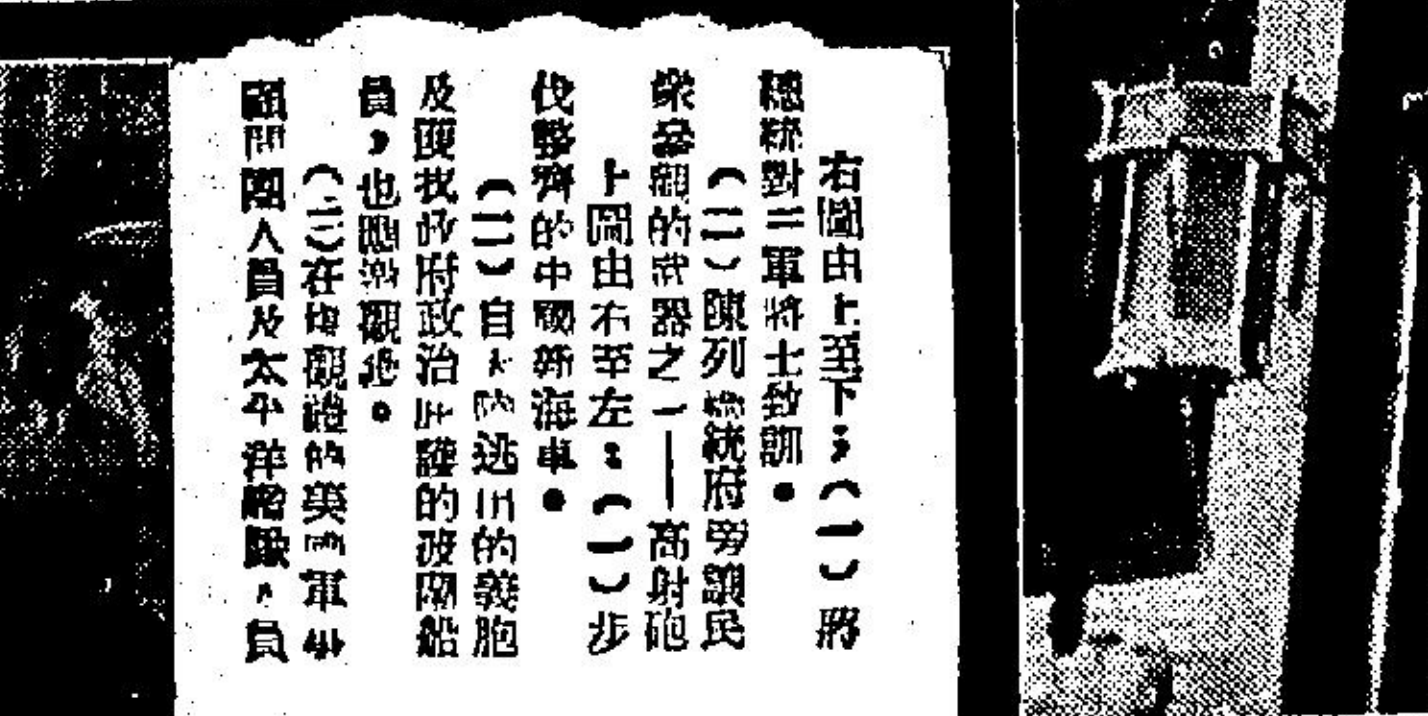 右圖由上至下；（一）蔣
總統對三軍將士致訓。
（二）陳列總統府旁讓民
衆參觀的武器之一——高射砲
上圖由右至左：（一）步
伐整齊的中國新海軍。
（二）自大陸逃出的義胞
及獲我政府政治庇護的波蘭船
員，也應邀觀禮。
（三）在場觀禮的美國軍
顧問團人員及太平洋艦隊人員